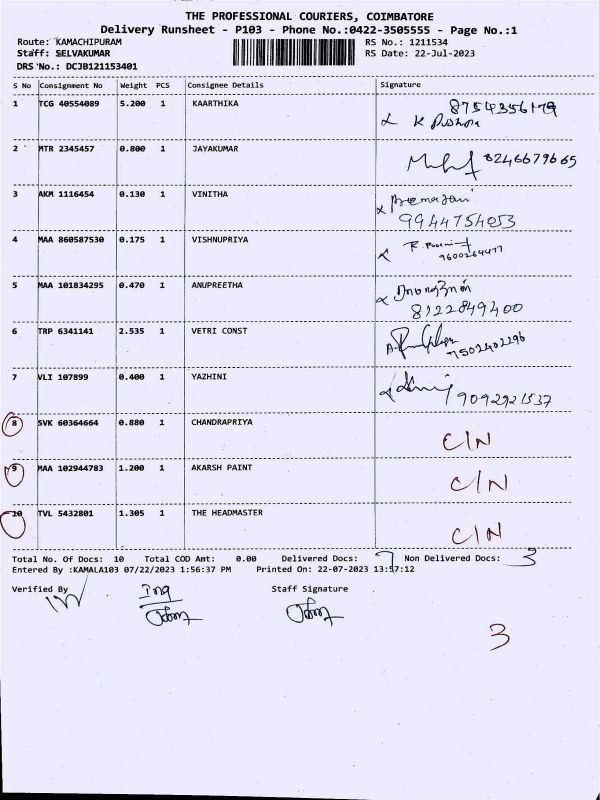 THE PROFESSIONAL COURIERS, COIMBATORE
Delivery Runsheet - P103 - Phone No.:0422-3505555 - Page No.:1
Route: KAMACHIPURAM RS No.: 1211534
Staff: SELVAKUMAR RS Date: 22-Jul-2023
DRS No.: DCJB121153401
S No Consignment No Weight PCS Consignee Details Signature
1 TCG 40554089 5.200 1 KAARTHIKA 8754356179
2 MTR 2345457 0.800 1 JAYAKUMAR 8246679665
3 AKM 1116454 0.130 1 VINITHA
9944754053
4 MAA 860587530 0.175 1 VISHNUPRIYA
9600264477
5 MAA 101834295 0.470 1 ANUPREETHA
8122849400
6 TRP 6341141 2.535 1 VETRI CONST
7502402296
7 VLI 107899 0.400 1 YAZHINI
9092921537
8 SVK 60364664 0.880 1 CHANDRAPRIYA C/N
9 MAA 102944783 1.200 1 AKARSH PAINT C/N
10 TVL 5432801 1.305 1 THE HEADMASTER C/N
Total No. Of Docs: 10 Total COD Amt: 0.00 Delivered Docs: 7 Non Delivered Docs: 3
Entered By :KAMALA103 07/22/2023 1:56:37 PM Printed On: 22-07-2023 13:57:12
Verified By Staff Signature
3